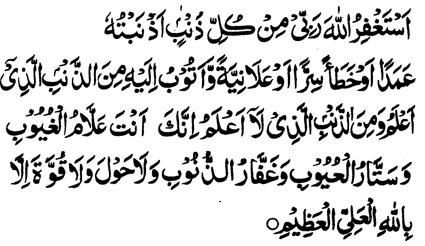 اَسْتَغْفِرُ اللهَ رَبِّىْ مِنْ كُلِّ ذَنْۢبٍ اَذْنَبْتُهٗ
عَمَدًا اَوْ خَطَأً سِرًّا اَوْ عَلَانِيَةً وَّاَتُوْبُ اِلَيْهِ مِنَ الذَّنْۢبِ الَّذِىْٓ
اَعْلَمُ وَمِنَ الذَّنْۢبِ الَّذِىْ لَآ اَعْلَمُ اِنَّكَ اَنْتَ عَلَّامُ الْغُيُوْبِ
وَسَتَّارُ الْعُيُوْبِ وَغَفَّارُ الذُّنُوْبِ وَلَا حَوْلَ وَلَا قُوَّةَ اِلَّا
بِاللهِ الْعَلِىِّ الْعَظِيْمِ○